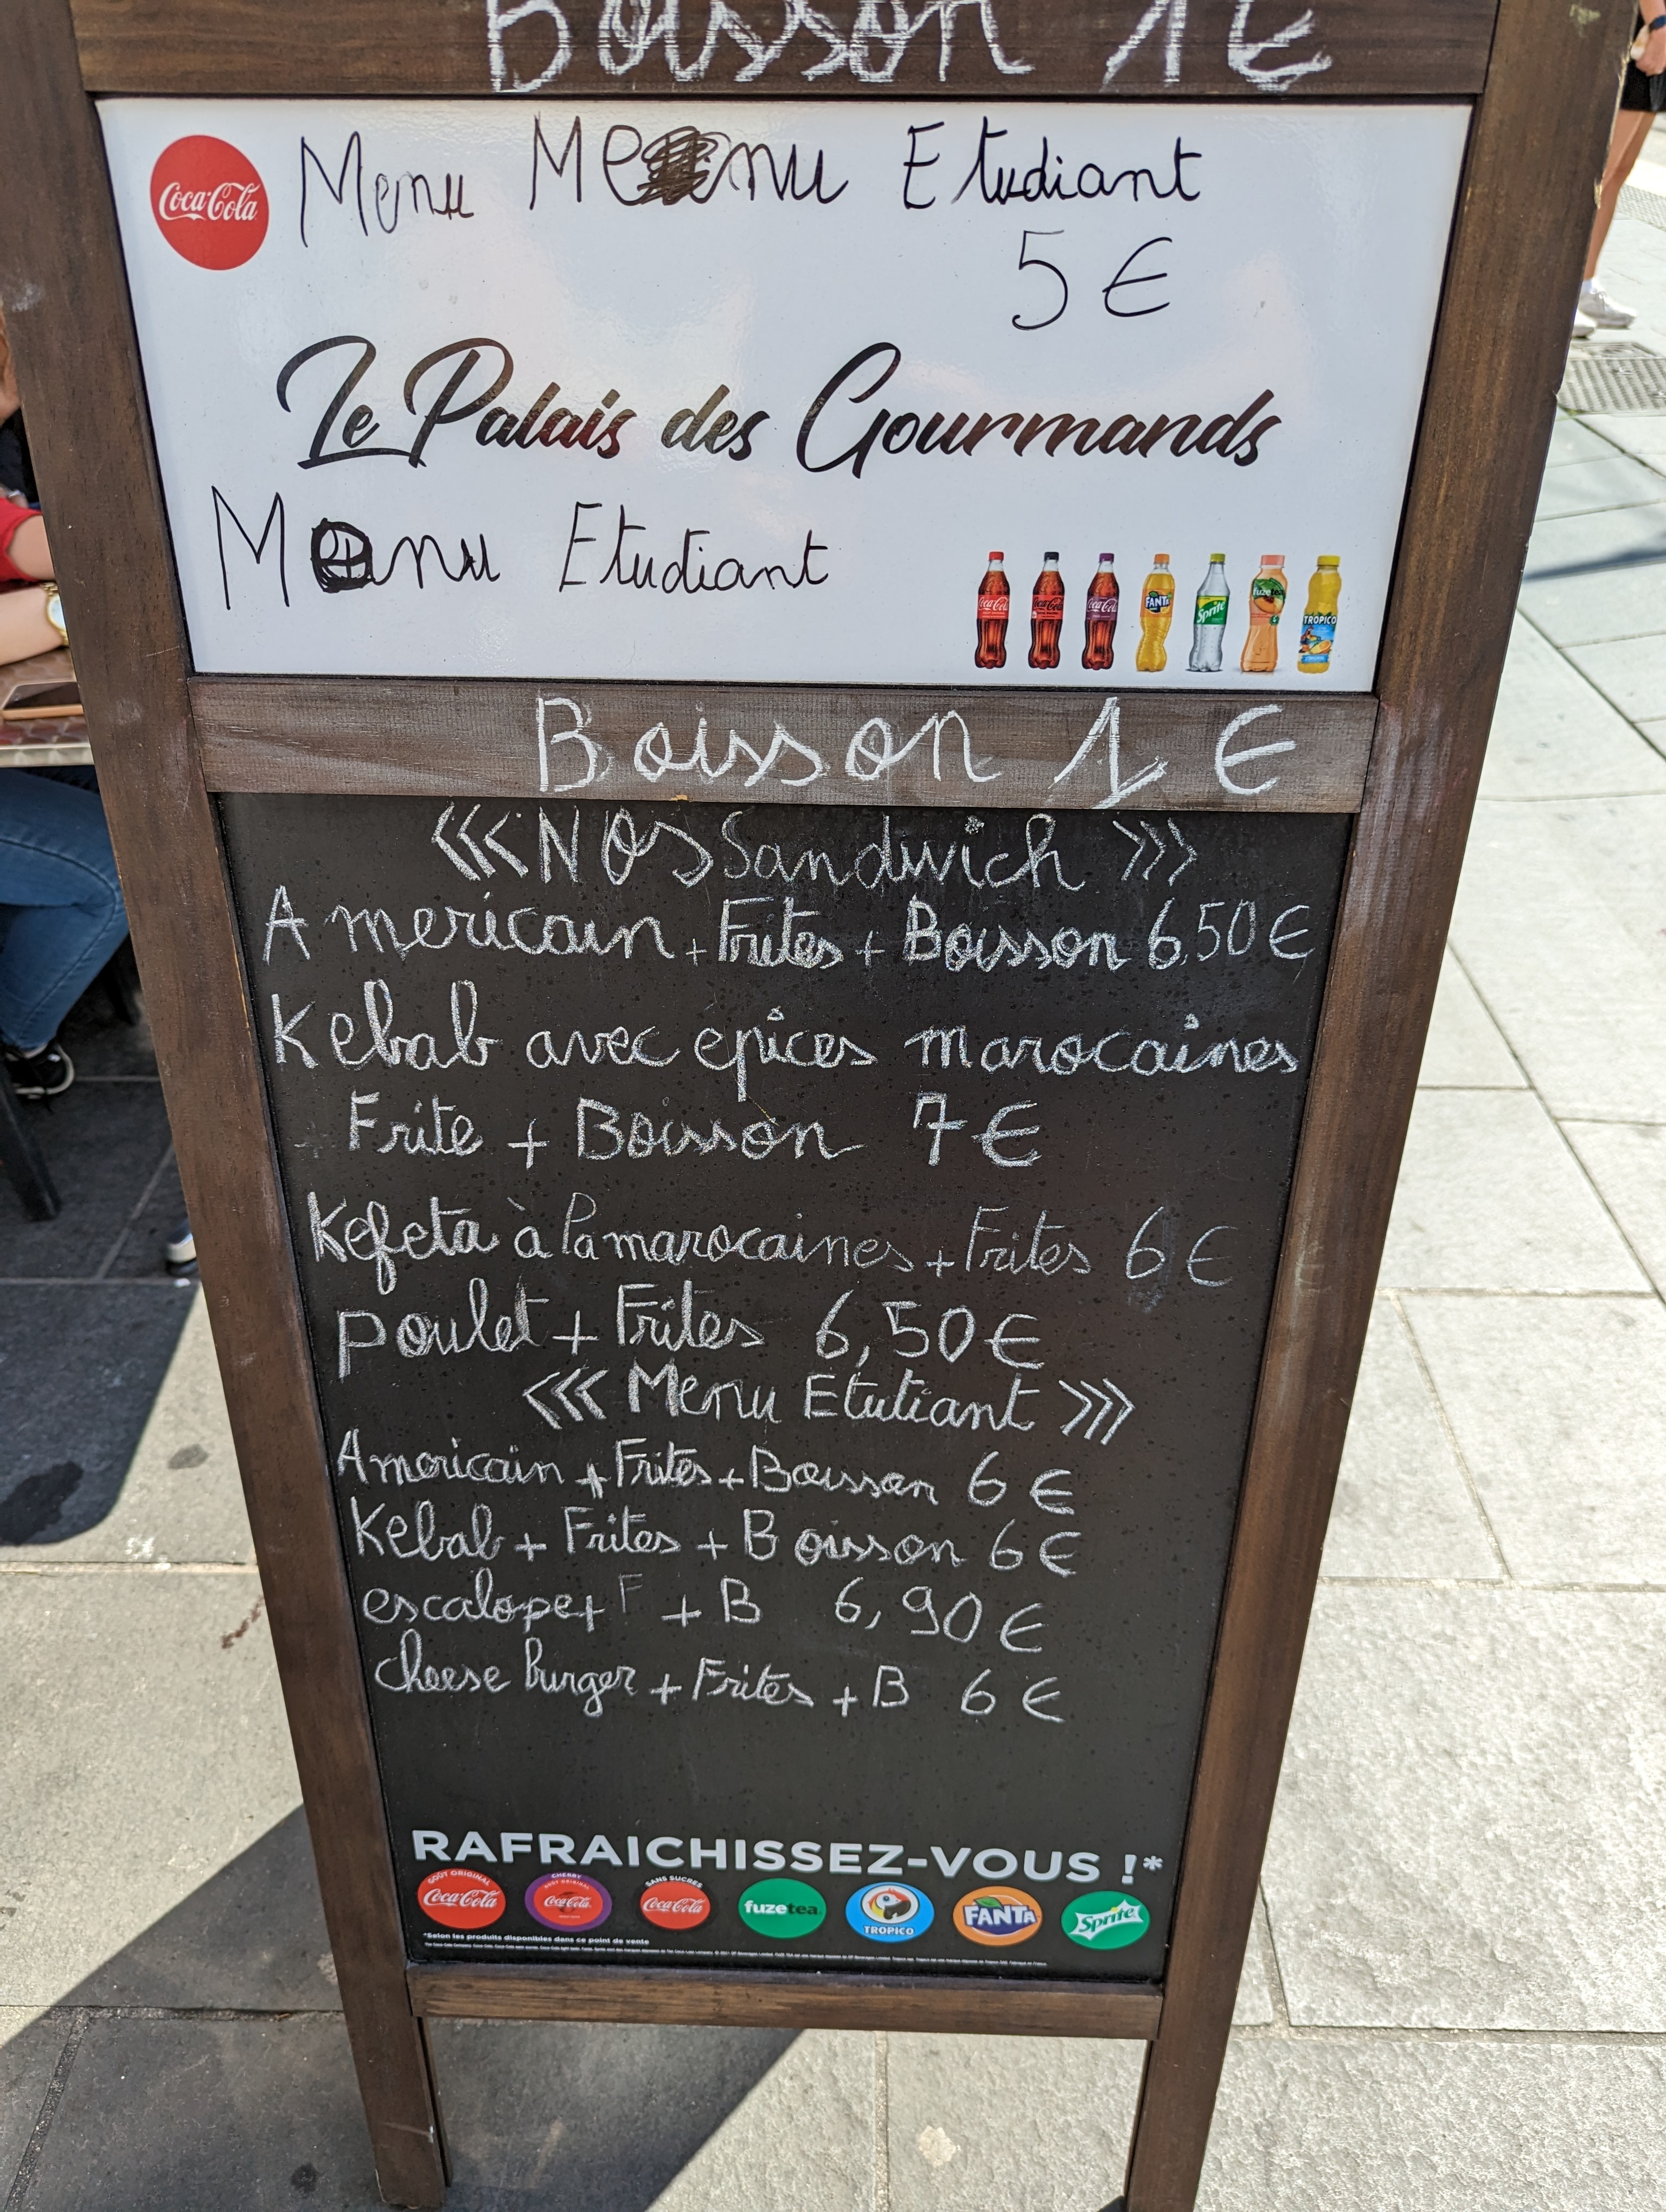 Boisson 1€
Coca-Cola
Menu Menu Etudiant
5€
Le Palais des Gourmands
Menu Etudiant
Coca-Cola Coca-Cola Coca-Cola FANTA Sprite fuzetea TROPICO
Boisson 1€
<<< NOS Sandwich >>>
Americain + Frites + Boisson 6,50€
Kebab avec epices marocaines
Frite + Boisson 7€
Kefeta à la marocaines + Frites 6€
poulet + Frites 6,50€
<<< Menu Etutiant >>>
Americain + Frites + Boisson 6€
Kebab + Frites + Boisson 6€
escalope + F + B 6,90€
cheese burger + Frites + B 6€
RAFRAICHISSEZ-VOUS !*
GOÛT ORIGINAL Coca-Cola CHERRY GOÛT ORIGINAL Coca-Cola SANS SUCRES Coca-Cola fuzetea TROPICO FANTA Sprite
*Selon les produits disponibles dans ce point de vente